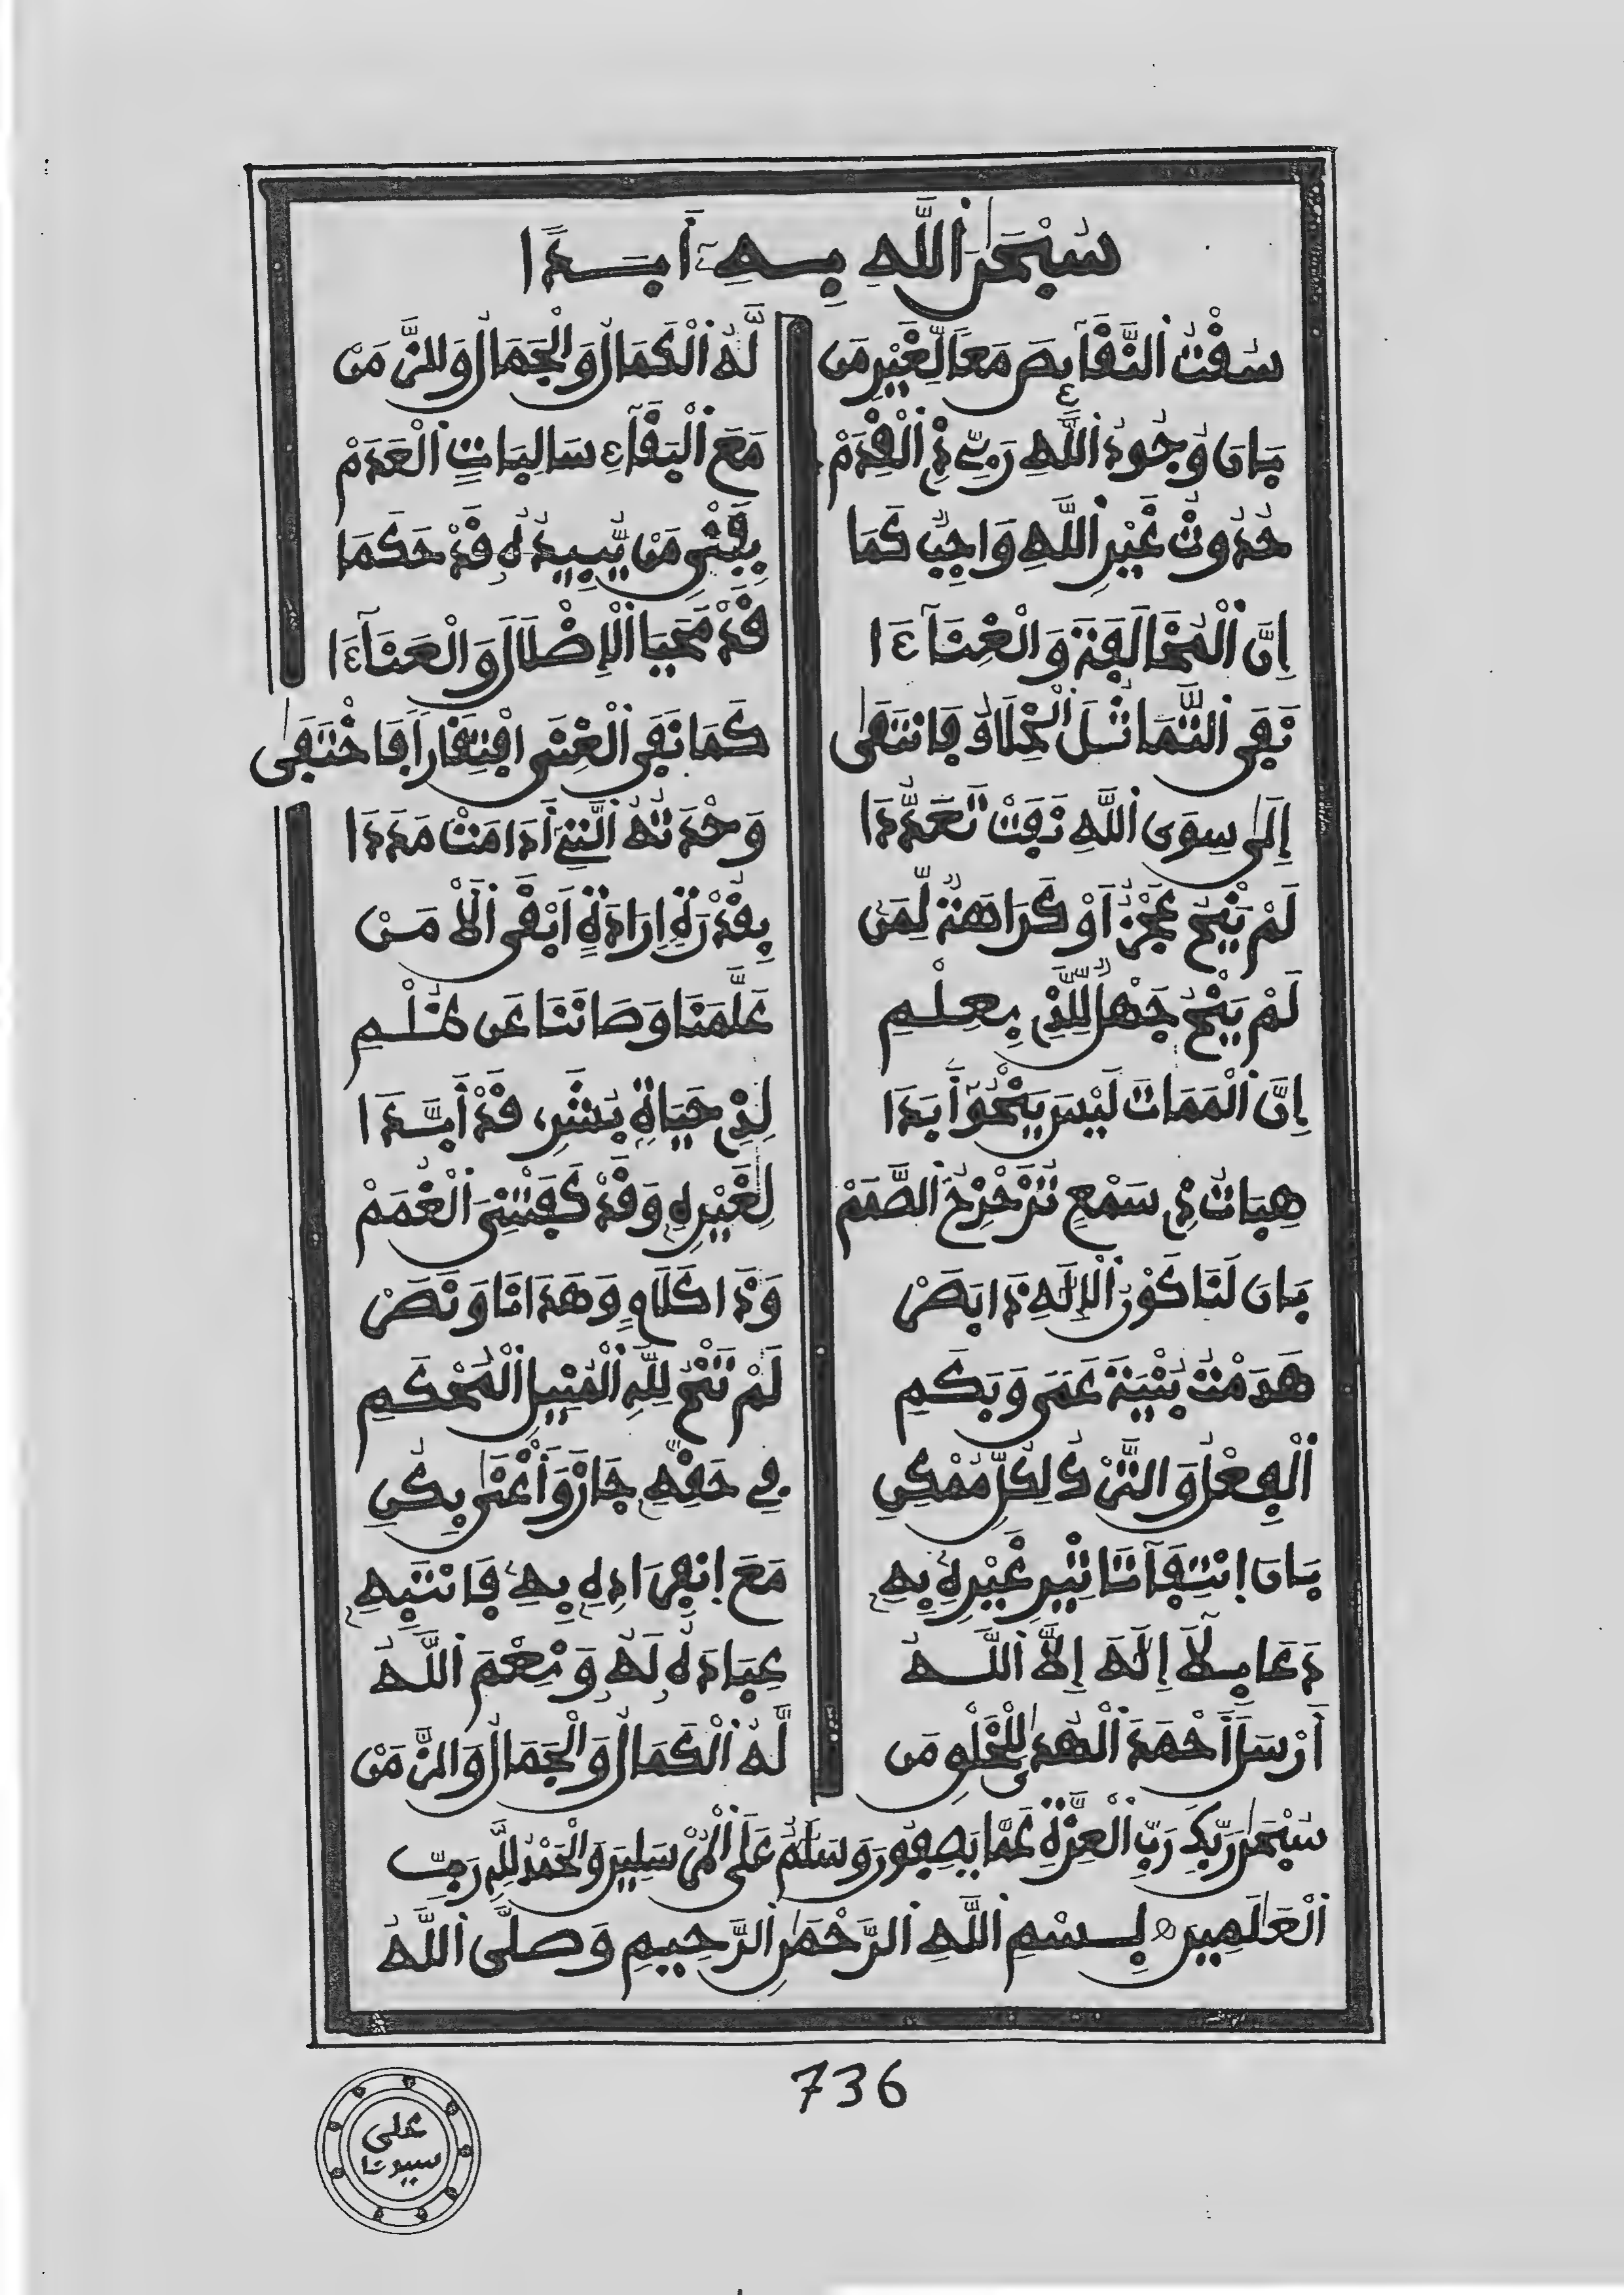 سُبْحَٰنَ اَللَّهِ بِـهِۦٓ أَبَـدًا
سُفْتُ اَلنَّفَآئِصَ مَعًا لِغَيْرِ مَن لَّهُ اَلْكَمَالُ وَالْجَمَالُ وَالزَّمَنْ
بَانَ وُجُودُ اَللَّهِ رَبِّي ذِي اَلْقِدَمْ مَعَ اَلْبَقَآءِ سَالِبَاتِ اَلْعَدَمْ
حُدُوثُ غَيْرِ اَللَّهِ وَاجِبٌ كَمَا بِفَنْيِ مَن يُّبِيدُهُ قَدْ حَكَمَا
إِنَّ اَلْمُخَالَفَةَ وَالْغِنَآءَا قَدْ مَحَيَا اَلْإِضْلَالَ وَالْعَنَآءَا
نَفَى اَلتَّمَاثُلَ اَلْخِلَافُ فَانتَفَىٰ كَمَا نَفَى اَلْغِنَى افْتِقَارًا فَاخْتَفَىٰ
إِلَىٰ سِوَى اَللَّهِ نَفَتْ تَعَدُّدَا وَحْدَتُهُ اَلَّتِي أَدَامَتْ مَدَدَا
لَمْ يَنْحُ عَجْزٌ أَوْ كَرَاهَةٌ لِّمَنْ بِقُدْرَةٍ إِرَادَةٍ أَبْقَى اَلَامَـنْ
لَمْ يَنْحُ جَهْلٌ لِّلَّذِي بِعِلْـمِ عَلَّمَنَا وَصَانَنَا عَن ظُـلْـمِ
إِنَّ اَلْمَمَاتَ لَيْسَ يَنْحُو أَبَدَا لِذِي حَيَاةٍ بَشَّرِي قَدْ أَبَّـدَا
هِبَاتُ ذِي سَمْعٍ تُزَحْزِحُ اَلصَّمَمْ لِغَيْرِهِ وَقَدْ كَفَتْنِيَ اَلْغُمَمْ
بَانَ لَنَا كَوْنُ اَلْإِلَٰهِ ذَا بَصَرْ وَذَا كَلَامٍ وَهَدَانَا وَنَصَرْ
هَدَمْتُ بُنْيَةَ عَمًى وَبَكَمِ لَمْ تَنْحُ لِلَّهِ اَلْمُنِيلِ اَلْمُحْكَمِ
اَلْفِعْلُ وَالتَّرْكُ لِكُلِّ مُمْكِنِ فِي حَقِّهِ جَازَ وَأَغْنَىٰ بِكُنِ
بَانَ انْتِفَآ تَاثِيرِ غَيْرِهِ بِهِ مَعَ انفِرَادِهِ بِهِۦ فَانتَبِهِ
دَعَا بِـلَآ إِلَٰهَ إِلَّا اَللَّـهُ عِبَادَهُ لَهُ وَنِعْمَ اَللَّـهُ
أَرْسَلَ أَحْمَدَ اَلْهُدَىٰ لِلْخَلْقِ مَن لَّهُ اَلْكَمَالُ وَالْجَمَالُ وَالزَّمَنْ
سُبْحَٰنَ رَبِّكَ رَبِّ اَلْعِزَّةِ عَمَّا يَصِفُونَ وَسَلَٰمٌ عَلَى اَلْمُرْسَلِينَ وَالْحَمْدُ لِلَّهِ رَبِّ
اَلْعَٰلَمِينَ بِـسْمِ اَللَّهِ اَلرَّحْمَٰنِ اَلرَّحِيمِ وَصَلَّى اَللَّهُ
736
على